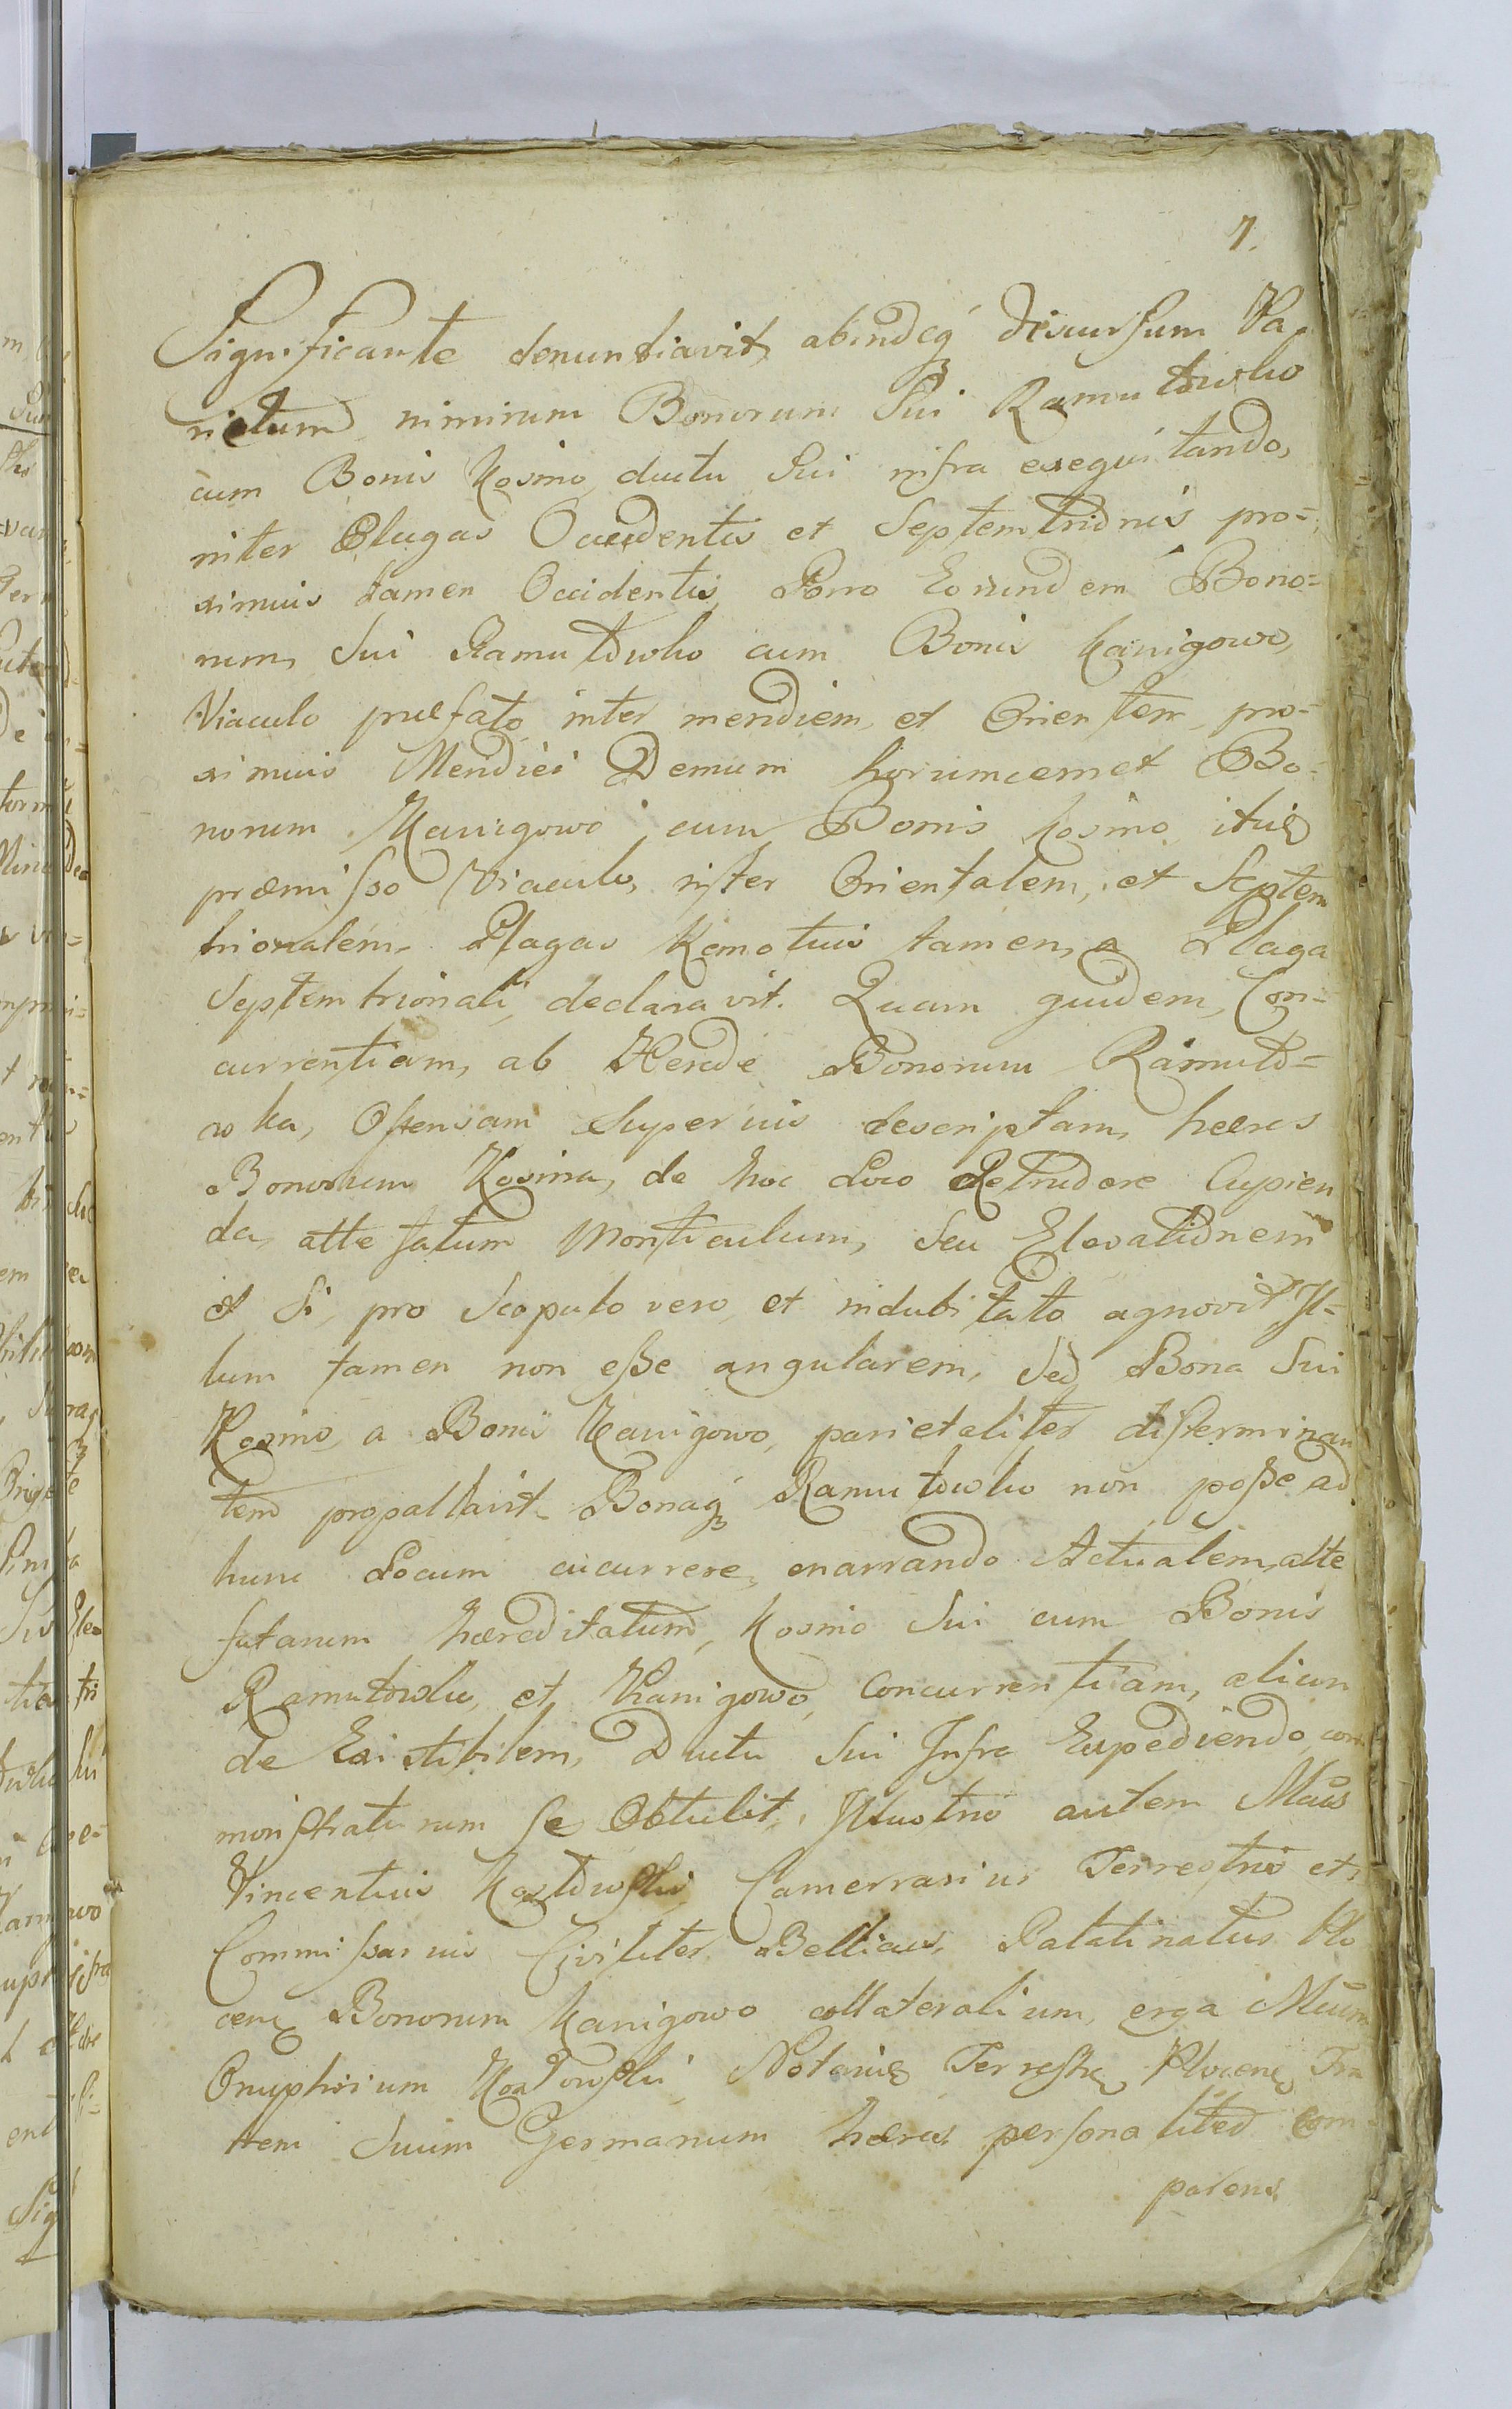 7.
Significante denuntiavit, abindeq₃ discursum Pa-
rietum, nimirum Bonorum Sui Ramutowko
cum Bonis Kosino, ductu Sui infra exequitando,
inter Plagas Occidentis et Septemtrionis pro=
ximius tamen Occidentis, Porro Eorundem Bono=
rum, Sui Ramutowko cum Bonis Kanigowo,
Viaculo præfato inter meridiem, et Orientem, pro=
ximius Meridiei Demum horumcemet Bo-
norum Kanigowo, cum Bonis Kosino itidę
præmisso Viaculo, inter Orientalem, et Septem
trionalem Plagas Remotius tamen, a Plaga
Septemtrionali, declaravit. Quam quidem, Con=
currentiam, ab Herede Bonorum Ramuto=
wka, Ostensam Superius descriptam, hæres
Bonorum Kosina, de hoc Loco Retrudere Cupien
do, atte fatum Monticulum, seu Elevationem
et Si, pro Scopulo vero, et indubitato agnovit, Il=
lum tamen non esse angularem, Sed Bona Sui
Kosino, a Bonis Kanigowo, parietaliter disterminan
tem propallavit Bonaq₃ Ramutowko non posse ad
hunc Locum cucurrere, enarrando Actualem, atte
fatarum hæreditatum, Kosino Sui cum Bonis
Ramutowko, et, Kanigowo, Concurrentiam, aliun
de Existibilem, Ductu Sui Infra Expediendo, com
monstraturum se Obtulit, Illustris autem Mcus
Vincentius Kozłowski, Camerrarius Terrestris et
Commissarius Civiliter Bellicus, Palatinatus Plo
cenę Bonorum Kanigowo collateralium, erga Mcum
Onuphrium Kozłowski, Notariũ Terrestrẽ Plocenẽ Fra
trem Suum Germanum hæres, personaliter com-
parens.